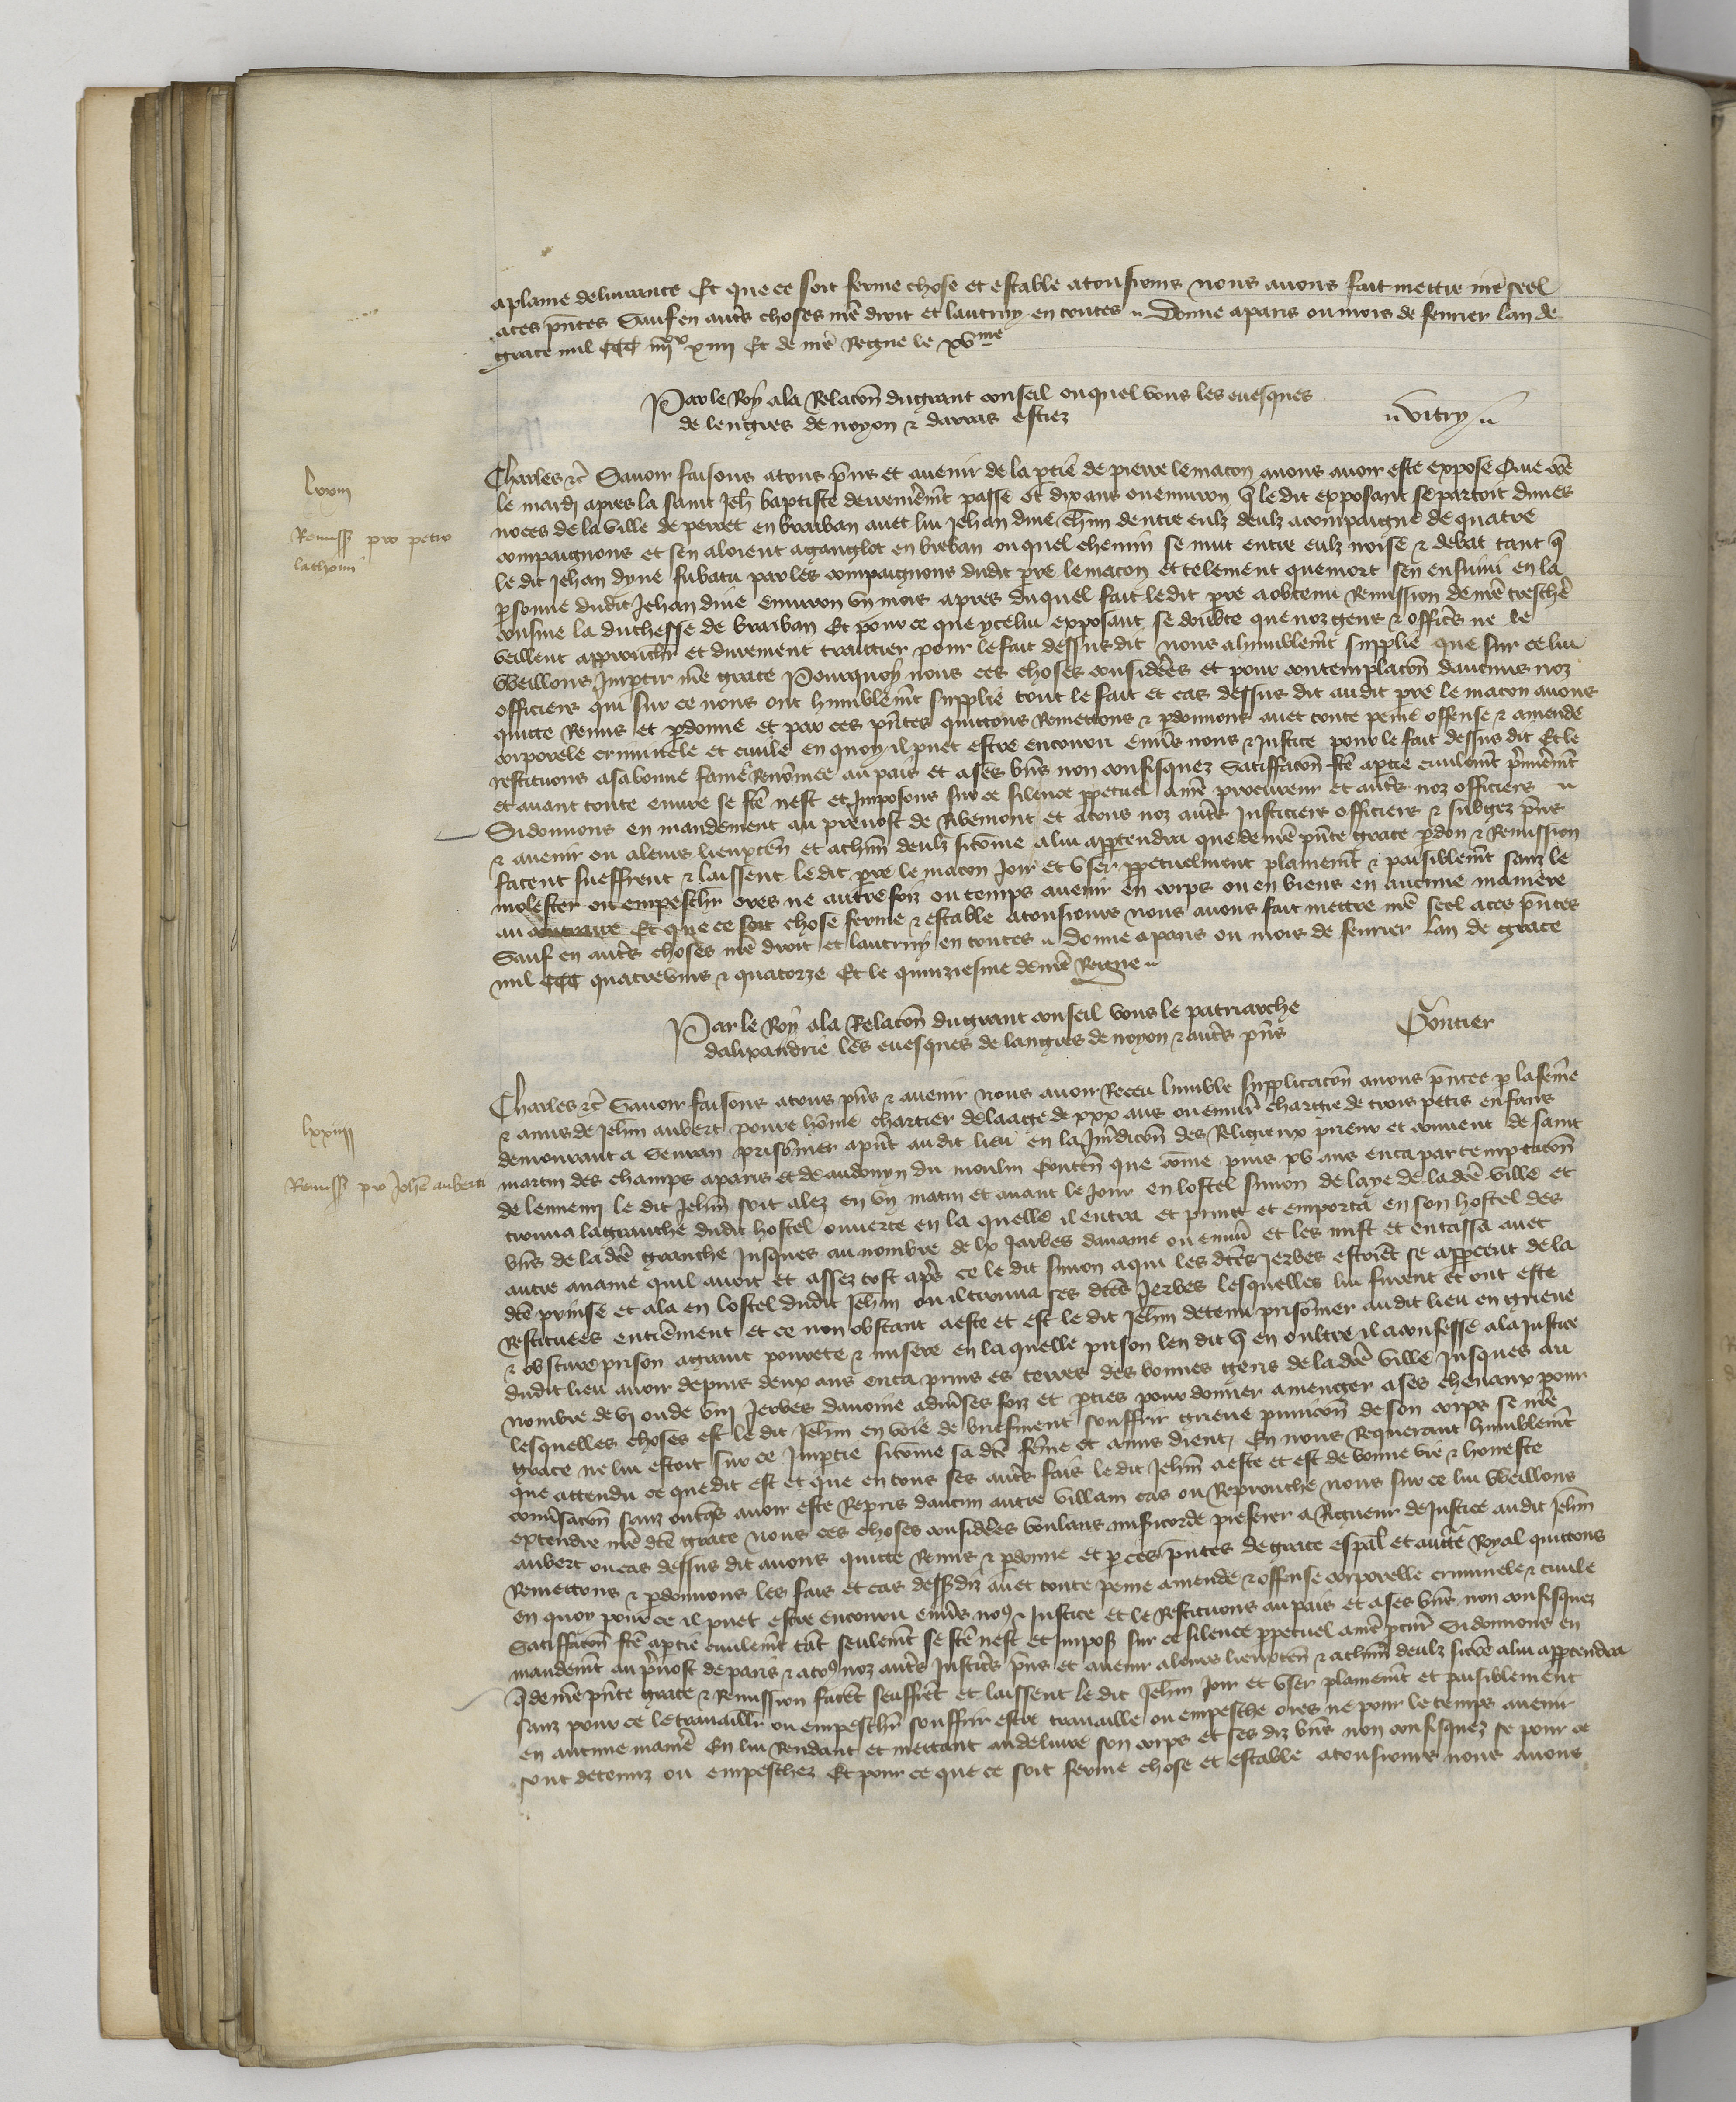 a plaine delivrance Et que ce soit ferme chose et estable a tousiours nous avons fait mettre nr̃e seel
a ces p̃ntes Sauf en aut̃s choses nr̃e droit et lautruy en toutes Donne a paris ou mois de fevrier lan de
grace mil CCC iiij^xx xiiij Et de nr̃e Regne le xv^me
Par le Roy a la Relacõn du grant conseil ouquel vous les evesques
de lengres de noyon ⁊ darras estiez
vitry
lxxiij
Remiss̃ pro petro
lathomi
Charles ⁊c̃ Savoir faisons a tous p̃ns et avenir de la p̃tie de pierre le macon avons avoir este expose Que cõe
le mardj apres la saint Jeh̃ baptiste derrenierem̃t passe ot dix ans ou environ q̃ le dit exposant se partoit dunes
noces de la ville de perwet en braiban avec lui Jehan dine ch̃un dentre eulz deulz acompaigne de quatre
compaignons et sen aloient a ganglot en breban ou quel chemin se mut entre eulz noise ⁊ debat tant q̃
le dit Jehan dyne fu batu par les compaignons dudit pr̃e le macon et telement que mort sen ensuivi en la
p̃sonne dudit Jehan dine environ un mois apres du quel fait le dit pr̃e a obtenu Remission de nr̃e treschr̃e
cousine la duchesse de braiban Et pour ce que ycelui exposant se doubte que noz gens ⁊ offic̃rs ne le
veillent approuchr̃ et durement traittier pour le fait dessusdit nous a humblem̃t supplie que sur ce lui
weillons Impartir nr̃e grace Pourquoy nous ces choses consider̃es et pour contemplacõn daucuns noz
officiers qui sur ce nous ont humblem̃t supplie tout le fait et cas dessus dit au dit pr̃e le macon avons
quicte Remis et p̃donne et par ces p̃ntes quittons Remettons ⁊ p̃donnons avec toute peine offense ⁊ amende
corporele criminele et civile en quoy il puet estre encouru env̾s nous ⁊ Justice pour le fait dessus dit Et le
restituons a sa bonne fame Renõmee au pais et a ses bñs non confisquez Satiffacõn fc̃e a p̃tie civilem̃t p̃mierem̃t
et avant toute euvre se fc̃e nest et Imposons sur ce silence p̃petuel a nr̃e procureur et aut̃s noz officiers
Si donnons en mandement au prevost de Ribemont et a tous noz aut̃s Justiciers officiers ⁊ subgez p̃ns
⁊ avenir ou a leurs lieuxteñ et a ch̃un deulz sicõme a lui app̃tendra que de nr̃e p̃nte grace p̃don ⁊ Remission
facent sueffrent ⁊ laissent le dit pr̃e le macon Joir et user p̃petuelment plainem̃t ⁊ paisiblem̃t sanz le
molester ou empeschr̃ ores ne autrefoiz ou temps avenir en corps ou en biens en aucune maniere
au contraire Et que ce soit chose ferme ⁊ estable a tousiours nous avons fait mettre nr̃e seel a ces p̃ntes
Sauf en aut̃s choses nr̃e droit et lautruy en toutes Donne a paris ou mois de fevrier lan de grace
mil CCC quatrevins ⁊ quatorze Et le quinziesme de nr̃e Regne
Par le Roy a la Relacõn du grant conseil vous le patriarche
dalixandrie les evesques de langres de noyon ⁊ aut̃s p̃ns
Pontier
lxxiiij
Remiss̃ pro Joh̃e auberti
Charles ⁊c̃ Savoir faisons a tous p̃ns ⁊ avenir nous avoir Receu lumble supplicacõn a nous p̃ntee p̃ la fem̃e
⁊ amis de Jeh̃n aubert povre hõme chartier de laage de xxx ans ou envir̃ chargie de trois petis enfans
demourant a Sevran prisoñnier a p̃nt au dit lieu en la Jur̃dicõn des Religieux prieur et convent de saint
martin des champs a paris et de audouyn du moulin Conteñ que cõme puis xv ans enca par temptacõn
de lennemj le dit Jeh̃n soit alez en un matin et avant le Jour en lostel simon de laye de la dc̃e ville et
trouva la granche dudit hostel ouverte en la quelle il entra et print et emporta en son hostel des
bñs de la dc̃e granche Jusques au nombre de lx Jarbes davaine ou envir̃ et les mist et entassa avec
autre avaine quil avoit et assez tost apr̃s ce le dit simon a qui les dc̃es Jerbes estoiẽt se app̃ceut de la
dc̃e prinse et ala en lostel dudit Jeh̃n ou il trouva ses dc̃es Jerbes lesquelles lui furent et ont este
Restituees entierement et ce non obstant a este et est le dit Jeh̃n detenu prisoñnier au dit lieu en grieve
⁊ obscure prison a grant povrete ⁊ misere en la quelle prison len dit q̃ en oultre il a confesse a la Justice
dudit lieu avoir depuis deux ans enca prins es terres des bonnes gens de la dc̃e ville Jusques au
nombre de vj ou de viij Jerbes davoine a div̾ses foiz et p̃ties pour donner a menger a ses chevaux pour
lesquelles choses est le dit Jeh̃n en voie de briefment souffrir grieve punicõn de son corps se nr̃e
grace ne lui estoit sur ce Imp̃tie sicõme sa dc̃e fem̃e et amis dient, En nous Requerant humblem̃t
que attendu ce que dit est et que en tous ses aut̃s fais le dit Jeh̃n a este et est de bonne vie ⁊ honeste
conv̾sacõn sanz onq̃s avoir este Repris daucun autre villain cas ou Reprouche nous sur ce lui weillons
extendre nr̃e dc̃e grace nous ces choses consider̃es voulans mis̾icorde preferer a Rigueur de Justice au dit Jeh̃n
aubert ou cas dessus dit avons quicte Remis ⁊ p̃donne et p̃ ces p̃ntes de grace esp̃al et auct̃e Royal quittons
Remettons ⁊ p̃donnons les fais et cas dess̃diz avec toute peine amende ⁊ offense corporelle criminele ⁊ civile
en quoy pour ce il puet estre encouru env̾s noꝰ ⁊ Justice et le Restituons au pais et a ses bñs non confisquez
Satiffacõn fc̃e a p̃tie civilem̃t tãt seulem̃t se fc̃e nest et impos̃ sur ce silence p̃petuel a nr̃e p̃cur̃ Si donnons en
mandem̃t au p̃vost de paris ⁊ a toꝰ noz aut̃s Justic̃rs p̃ns et avenir a leurs lieuxteñ ⁊ a ch̃un deulz sicõe a lui app̃tendra
q̃ de nr̃e p̃nte grace ⁊ Remission facẽt seuffrẽt et laissent le dit Jeh̃n Joir et user plainem̃t et paisiblement
sanz pour ce le travaillr̃ ou empeschr̃ souffrir estre travaille ou empesche ores ne pour le temps avenir
en aucune manier̃e En lui Rendant et mettant au delivre son corps et ses diz bñs non confisquez se pour ce
sont detenuz ou empeschez Et pour ce que ce soit ferme chose et estable a tousiours nous avons